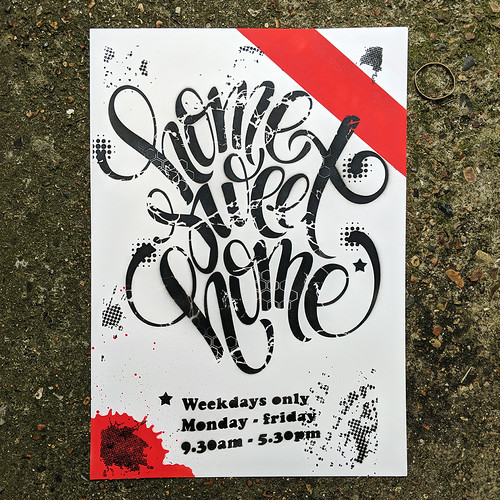 home
sweet
home
Weekdays only
Monday - friday
9.30am - 5.30pm